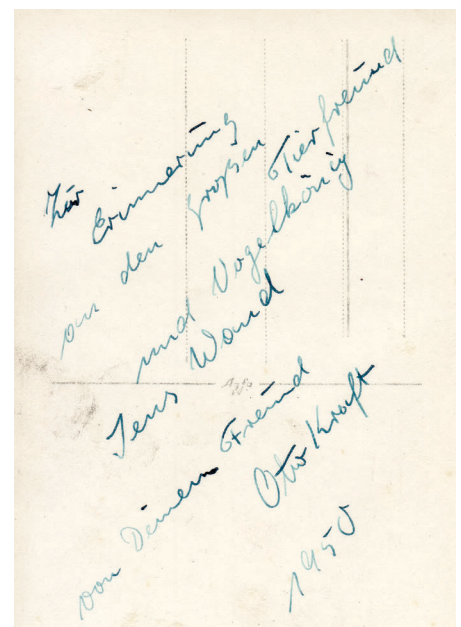 Zur
Erinnerung
an den großen Tierfreund
und Vogelkönig
Jens Wand
von Deinem Freund
Otto Kraft
1950